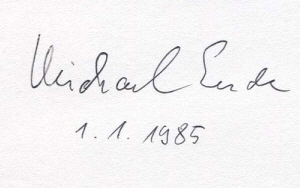 Michael Ende
1.1.1985